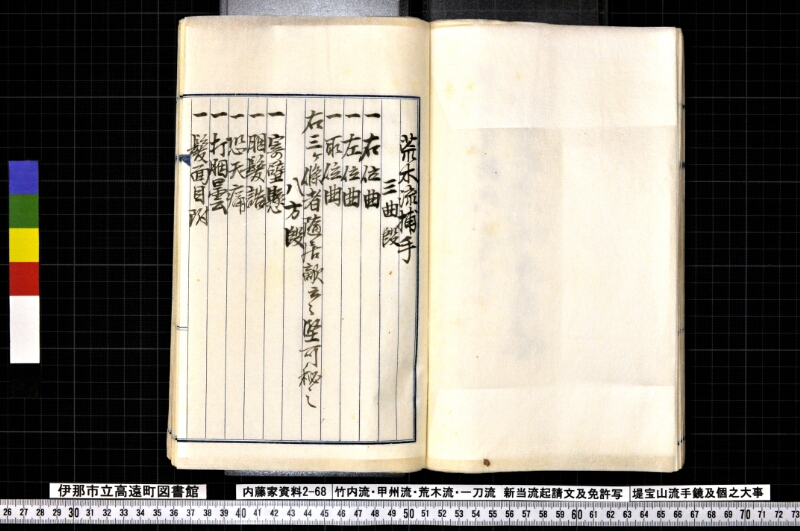 荒木流捕手
三曲段
一 右位曲
一 左位曲
一 取位曲
右三ヶ條者随
八方段
一 胴髪詰
一 恐天痛
一 打胴曇
一 髪面目
伊那市立高遠町図書館
内藤家資料2-68
竹内流・甲州流・荒木流・一刀流 新当流起請文及免許写
堤宝山流手鏡及個之大事
26 27 28 29 30 31 32 33 34 35 36 37 38 39 40 41 42 43 44 45 46 47 48 49 50 51 52 53 54 55 56 57 58 59 60 61 62 63 64 65 66 67 68 69 70 71 72 73